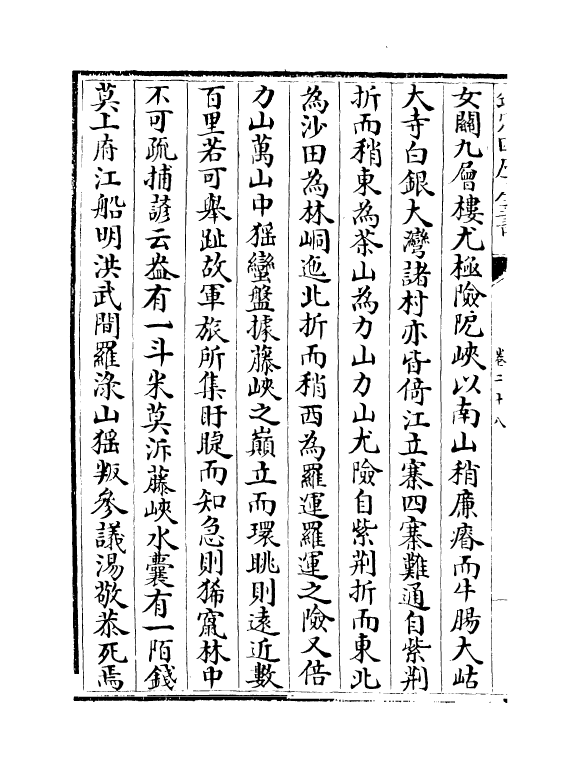 女闗九層樓尤極險阨峽以南山稍庳瘠而牛腸大岵
大寺白銀大灣諸村亦皆倚江立寨四寨難通自紫荆
折而稍東為茶山為力山力山尤險自紫荆折而東北
為沙田為林峒迤北折而稍西為羅運羅運之險又倍
力山萬山中猺蠻盤據藤峽之巔立而環眺則逺近數
百里若可舉趾故軍旅所集盱睫而知急則狶竄林中
不可疏捕諺云盎有一斗米莫泝藤峽水囊有一陌錢
莫上府江船明洪武間羅渌山猺叛參議湯敬恭死焉
卷二十八